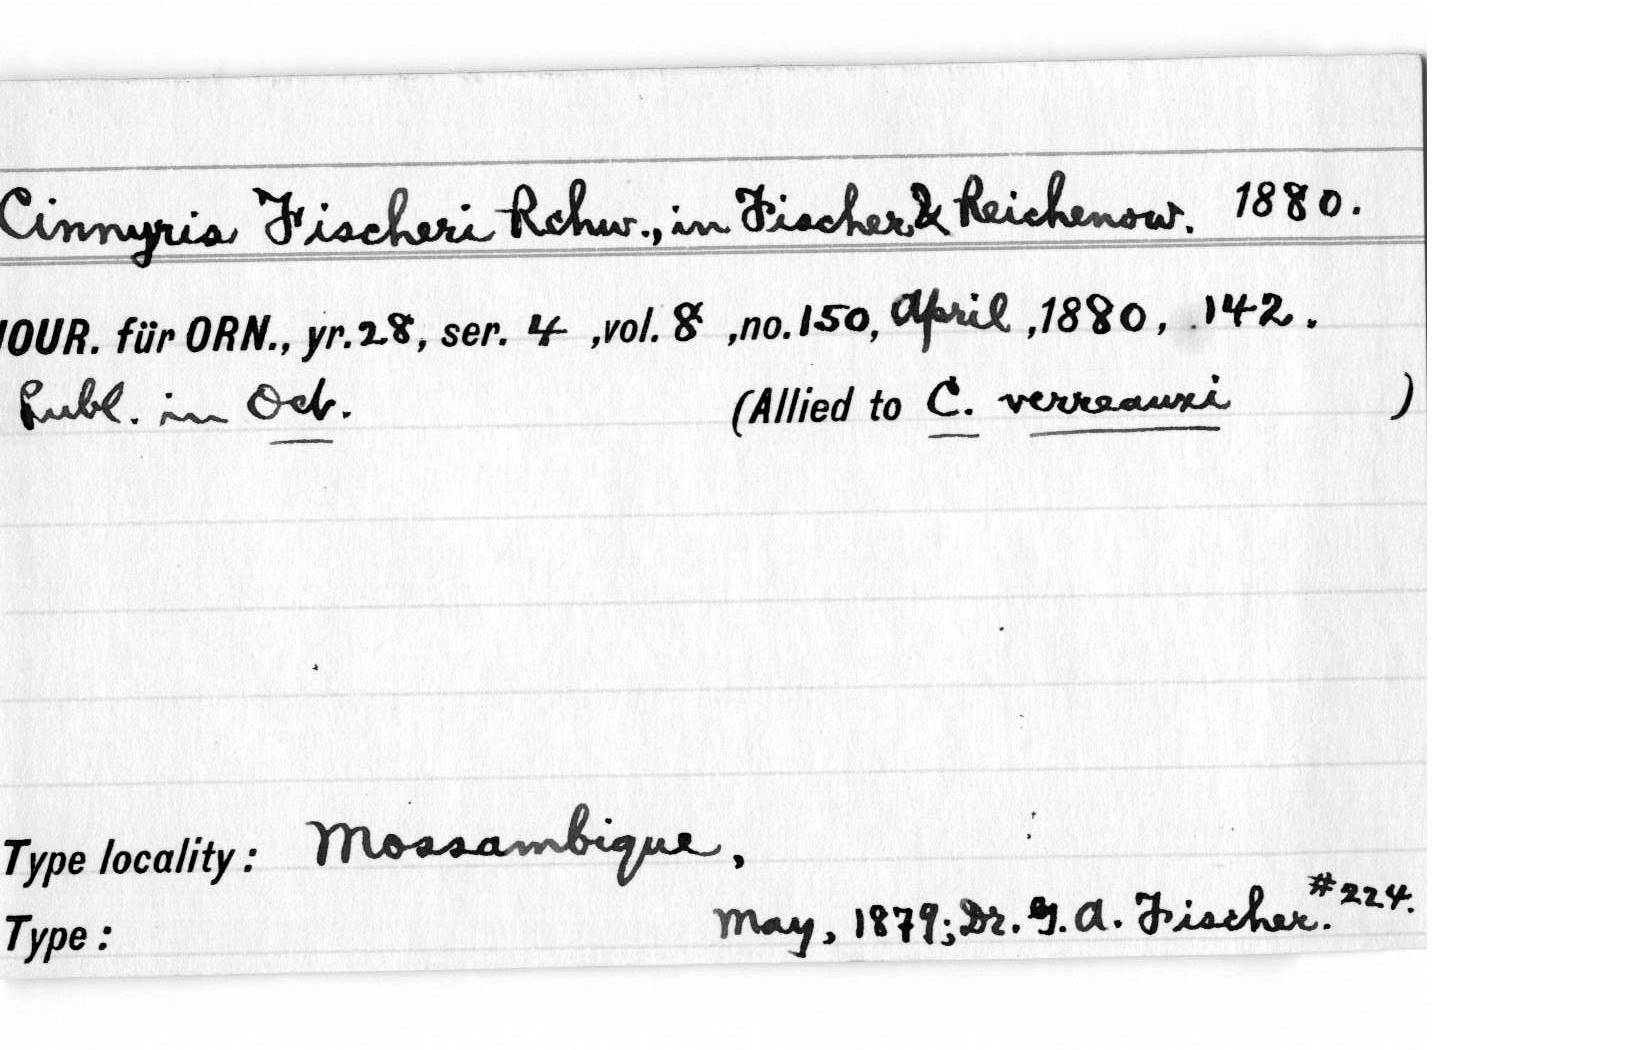 Cinnyris Fischeri Rchw., in Fischer & Reichenow. 1880.
JOUR. für ORN., yr. 28, ser. 4 ,vol. 8 ,no. 150, April ,1880, 142.
Publ. in Oct. (Allied to C. verreauxi )
Type locality: Mossambique,
Type: May, 1879; Dr. G. A. Fischer. #224.